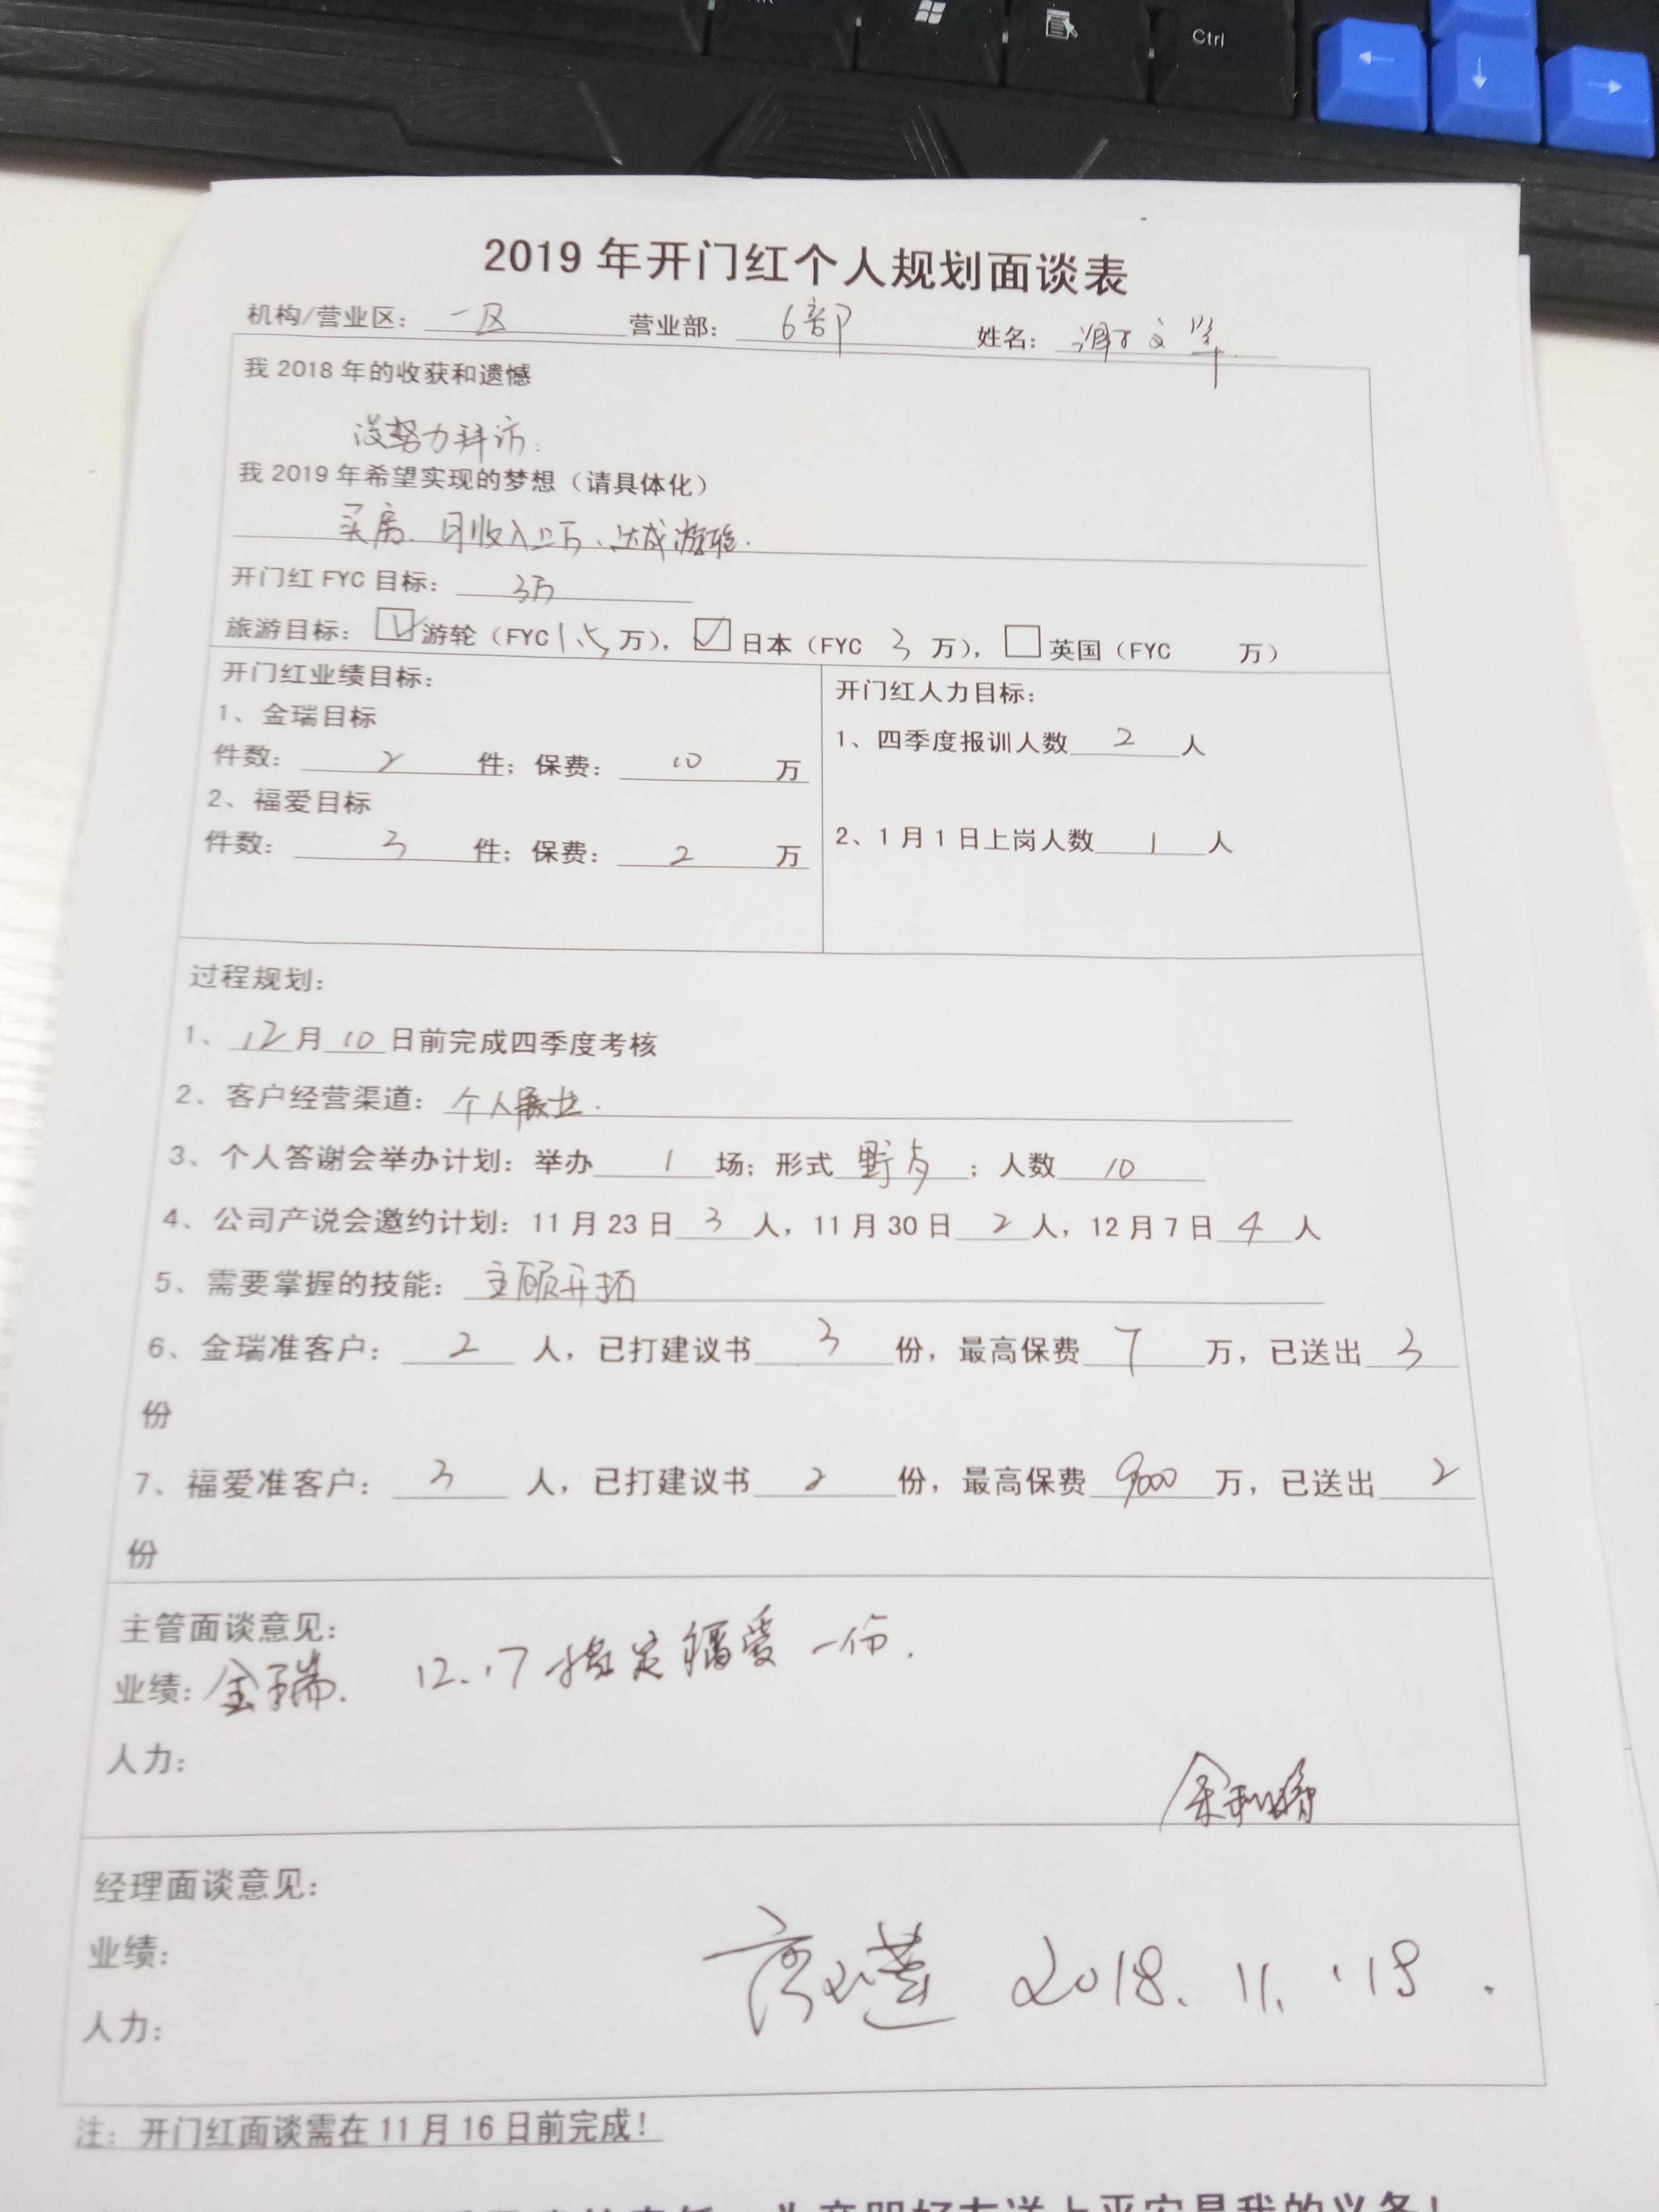 Ctrl
2019年开门红个人规划面谈表
机构/营业区：一区 营业部：6部 姓名：文
我2018年的收获和遗憾
没努力拜访.
我2019年希望实现的梦想（请具体化）
买房、月收入上万、达成游轮.
开门红FYC目标：3万
旅游目标：☑游轮（FYC 1.5万），☑日本（FYC 3万），□英国（FYC 万）
开门红业绩目标：
1、金瑞目标
件数：2件；保费：10万
2、福爱目标
件数：3件；保费：2万
开门红人力目标：
1、四季度报训人数2人
2、1月1日上岗人数1人
过程规划：
1、12月10日前完成四季度考核
2、客户经营渠道：个人展业.
3、个人答谢会举办计划：举办1场；形式野；人数10
4、公司产说会邀约计划：11月23日3人，11月30日2人，12月7日4人
5、需要掌握的技能：主顾开拓
6、金瑞准客户：2人，已打建议书3份，最高保费7万，已送出3
份
7、福爱准客户：3人，已打建议书2份，最高保费9000万，已送出2
份
主管面谈意见：
业绩：金瑞. 12.17搞定福爱一份.
人力：
经理面谈意见：
业绩：
2018.11.
人力：
注：开门红面谈需在11月16日前完成！